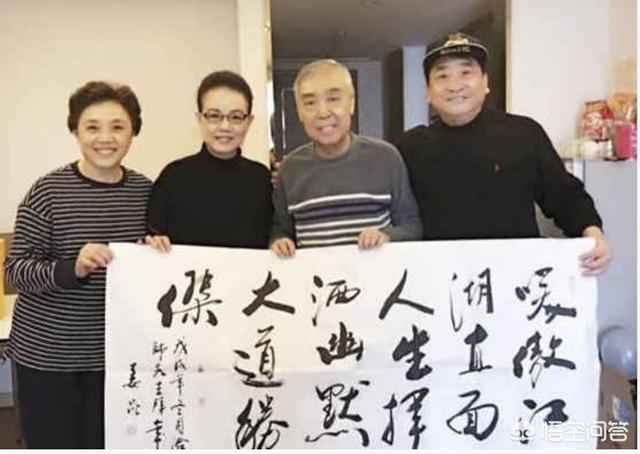 咲傲江
湖直面
人生揮
洒幽默
大道勝
傑
戊戌年
姜昆
悟空问答